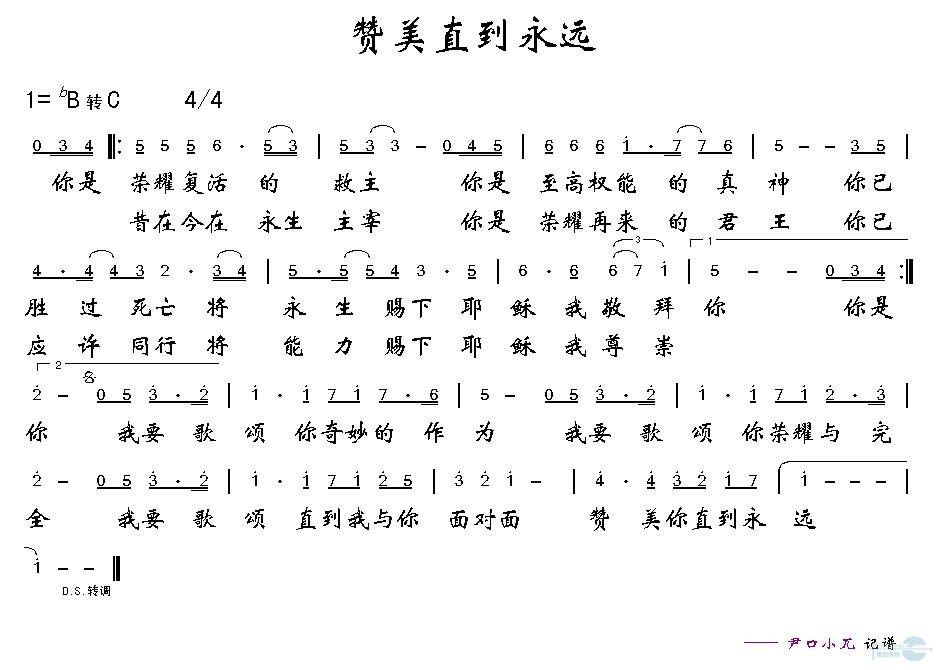 赞美直到永远
1= bB 转 C 4/4
0 3 4 ‖: 5 5 5 6 · 5 3 | 5 3 3 – 0 4 5 | 6 6 6 1 · 7 7 6 | 5 – – 3 5 |
你是 荣耀复活 的 救主 你是 至高权能 的 真 神 你已
昔在今在 永生 主宰 你是 荣耀再来 的 君 王 你已
3
1
4 · 4 4 3 2 · 3 4 | 5 · 5 5 4 3 · 5 | 6 · 6 6 7 1 | 5 – – 0 3 4 :‖
胜 过 死亡 将 永 生 赐下 耶 稣 我 敬 拜 你 你是
应 许 同行 将 能 力 赐下 耶 稣 我 尊 崇
2
2 – 0 5 3 · 2 | 1 · 1 7 1 7 · 6 | 5 – 0 5 3 · 2 | 1 · 1 7 1 2 · 3 |
你 我要 歌 颂 你奇妙的 作 为 我要 歌 颂 你荣耀与 完
2 – 0 5 3 · 2 | 1 · 1 7 1 2 5 | 3 2 1 – | 4 · 4 3 2 1 7 | 1 – – – |
全 我要 歌 颂 直到我与你 面对面 赞 美你直到永 远
1 – – ‖
D.S.转调
—— 尹口小兀 记谱